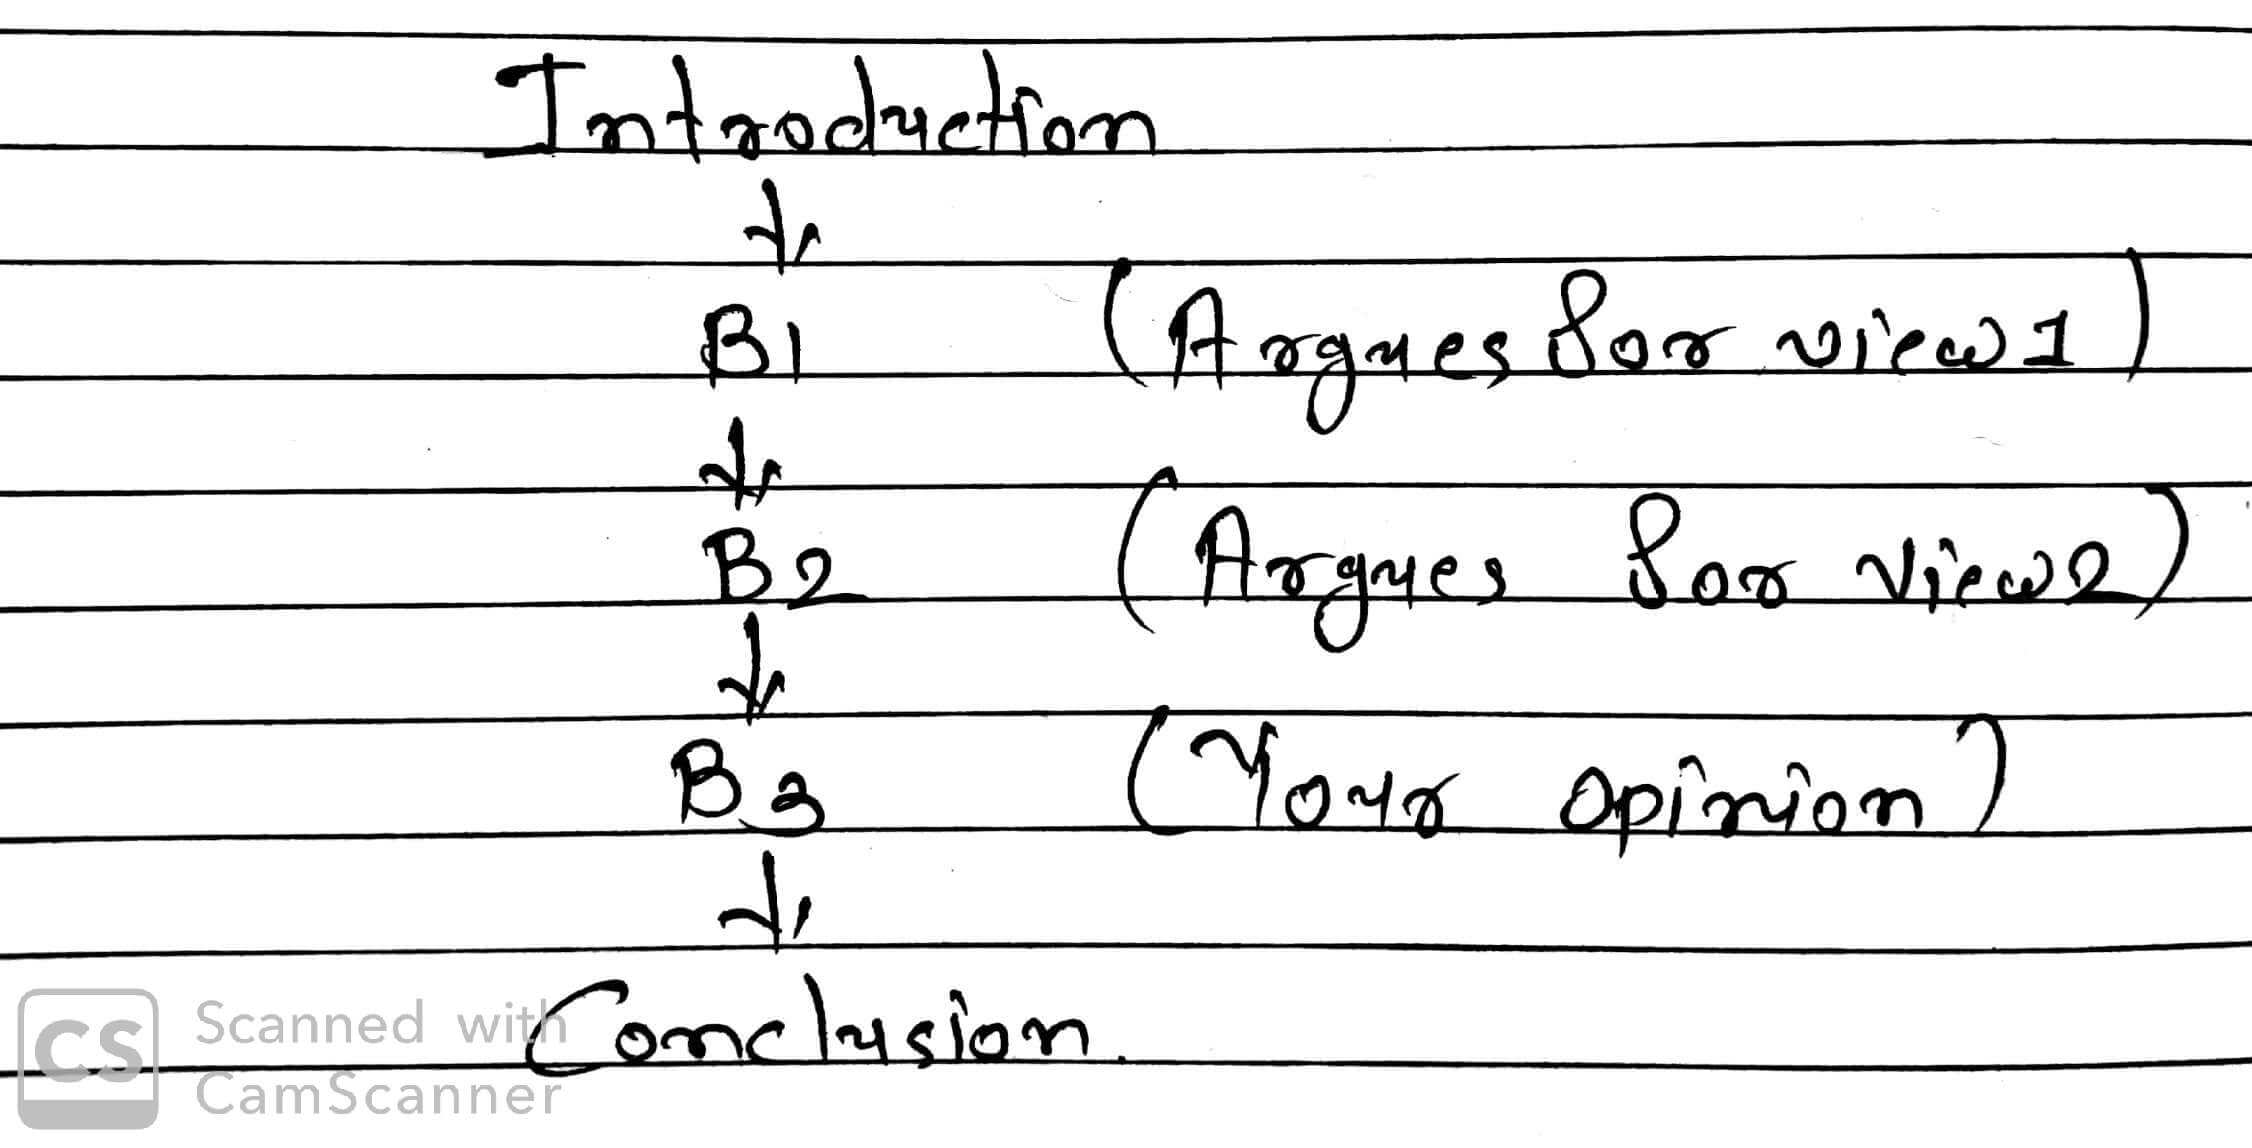 Introduction
↓
B1 (Argues for view 1)
↓
B2 (Argues for view 2)
↓
B3 (Your opinion)
↓
Conclusion.
CS Scanned with
CamScanner